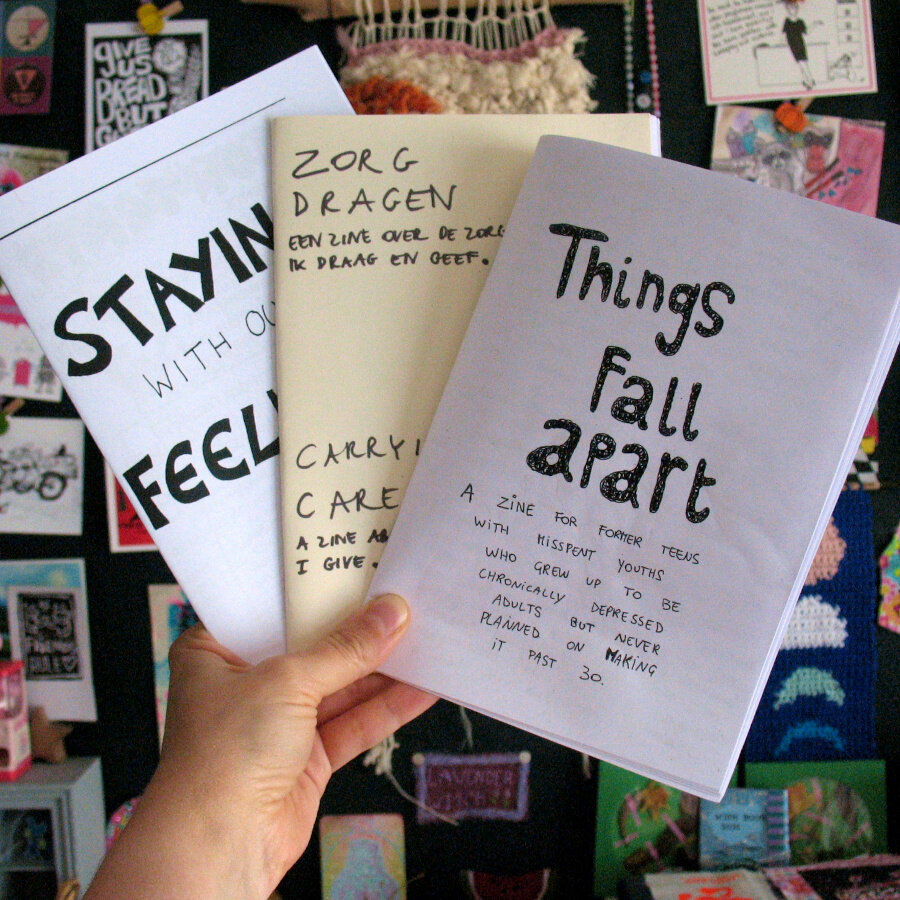 GIVE
US
BREAD
BUT
STAYIN
WITH OU
FEEL
ZORG
DRAGEN
EEN ZINE OVER DE ZORG
IK DRAAG EN GEEF.
CARRYI
CARE
A ZINE AB
I GIVE.
Things
fall
apart
A ZINE FOR FORMER TEENS
WITH MISSPENT YOUTHS
WHO GREW UP TO BE
CHRONICALLY DEPRESSED
ADULTS BUT NEVER
PLANNED ON MAKING
IT PAST 30.
LAVENDER